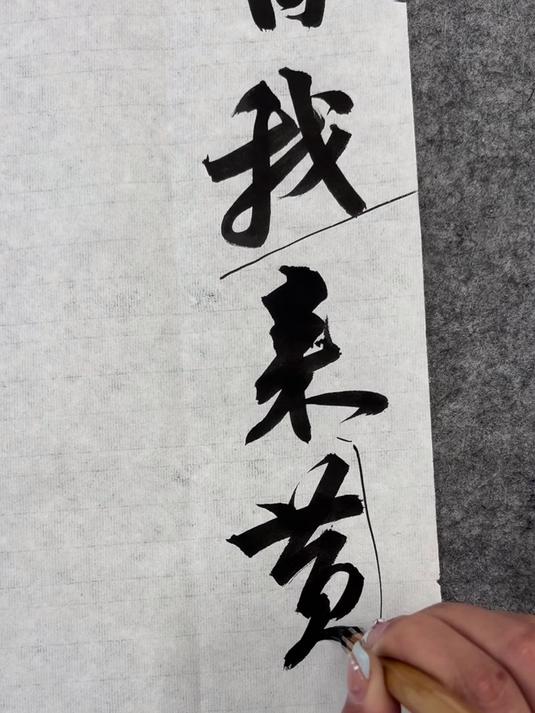 我来黄